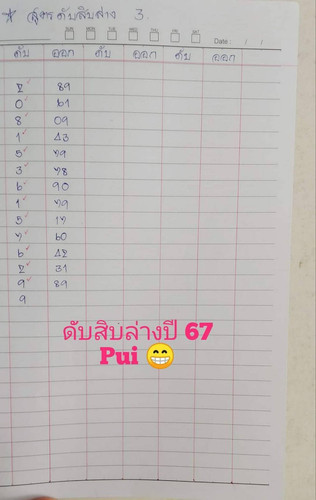 * สูตรดับสิบล่าง 3
Date : / /
ดับ ออก ดับ ออก ดับ ออก
2 89
0 61
8 09
1 43
5 79
3 78
6 90
1 79
5 17
7 60
6 42
2 31
9 89
9
ดับสิบล่างปี 67
Pui 😁